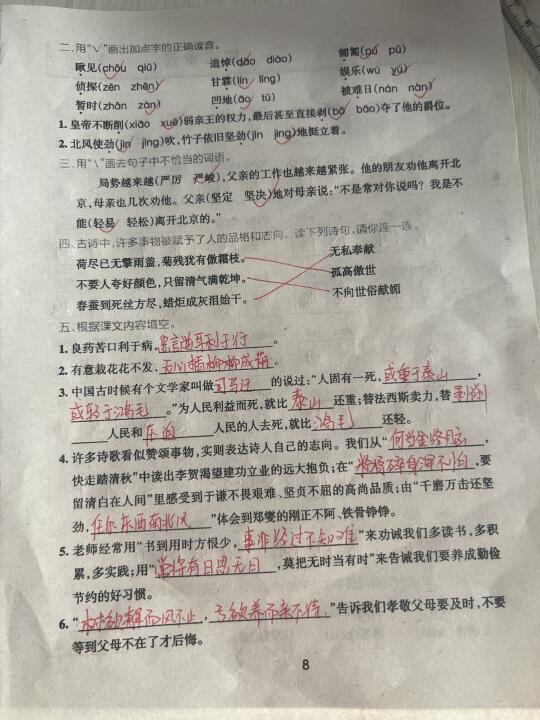 二、用"√"画出加点字的正确读音。
瞅见(chǒu qiū) 追悼(dāo diào) 匍匐(pú pū)
侦探(zēn zhēn) 甘霖(lín líng) 娱乐(wú yú)
暂时(zhān zàn) 凹地(āo tū) 被难日(nán nàn)
1. 皇帝不断削(xiāo xuē)弱亲王的权力,最后甚至直接剥(bō bāo)夺了他的爵位。
2. 北风使劲(jìn jìng)吹,竹子依旧坚劲(jìn jìng)地挺立着。
三、用"\"画去句子中不恰当的词语。
局势越来越(严厉 严峻),父亲的工作也越来越紧张。他的朋友劝他离开北
京,母亲也几次劝他。父亲(坚定 坚决)地对母亲说:"不是常对你说吗?我是不
能(轻易 轻松)离开北京的。"
四、古诗中,许多事物被赋予了人的品格和志向。读下列诗句,请你连一连。
荷尽已无擎雨盖,菊残犹有傲霜枝。 无私奉献
不要人夸好颜色,只留清气满乾坤。 孤高傲世
春蚕到死丝方尽,蜡炬成灰泪始干。 不向世俗献媚
五、根据课文内容填空。
1. 良药苦口利于病,忠言逆耳利于行。
2. 有意栽花花不发,无心插柳柳成荫。
3. 中国古时候有个文学家叫做司马迁的说过:"人固有一死,或重于泰山,
或轻于鸿毛。"为人民利益而死,就比泰山还重;替法西斯卖力,替剥削
人民和压迫人民的人去死,就比鸿毛还轻。
4. 许多诗歌看似赞颂事物,实则表达诗人自己的志向。我们从"何当金络脑,
快走踏清秋"中读出李贺渴望建功立业的远大抱负;在"粉骨碎身浑不怕,要
留清白在人间"里感受到于谦不畏艰难、坚贞不屈的高尚品质;由"千磨万击还坚
劲,任尔东西南北风"体会到郑燮的刚正不阿、铁骨铮铮。
5. 老师经常用"书到用时方恨少,事非经过不知难"来劝诫我们多读书,多积
累,多实践;用"常将有日思无日,莫把无时当有时"来告诫我们要养成勤俭
节约的好习惯。
6. "树欲静而风不止,子欲养而亲不待"告诉我们孝敬父母要及时,不要
等到父母不在了才后悔。
8